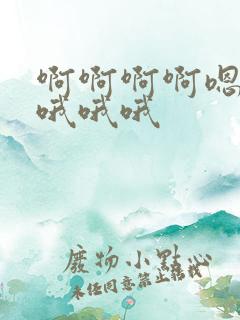 啊啊啊啊嗯
哦哦哦
廢物小點心
未经同意禁止转载